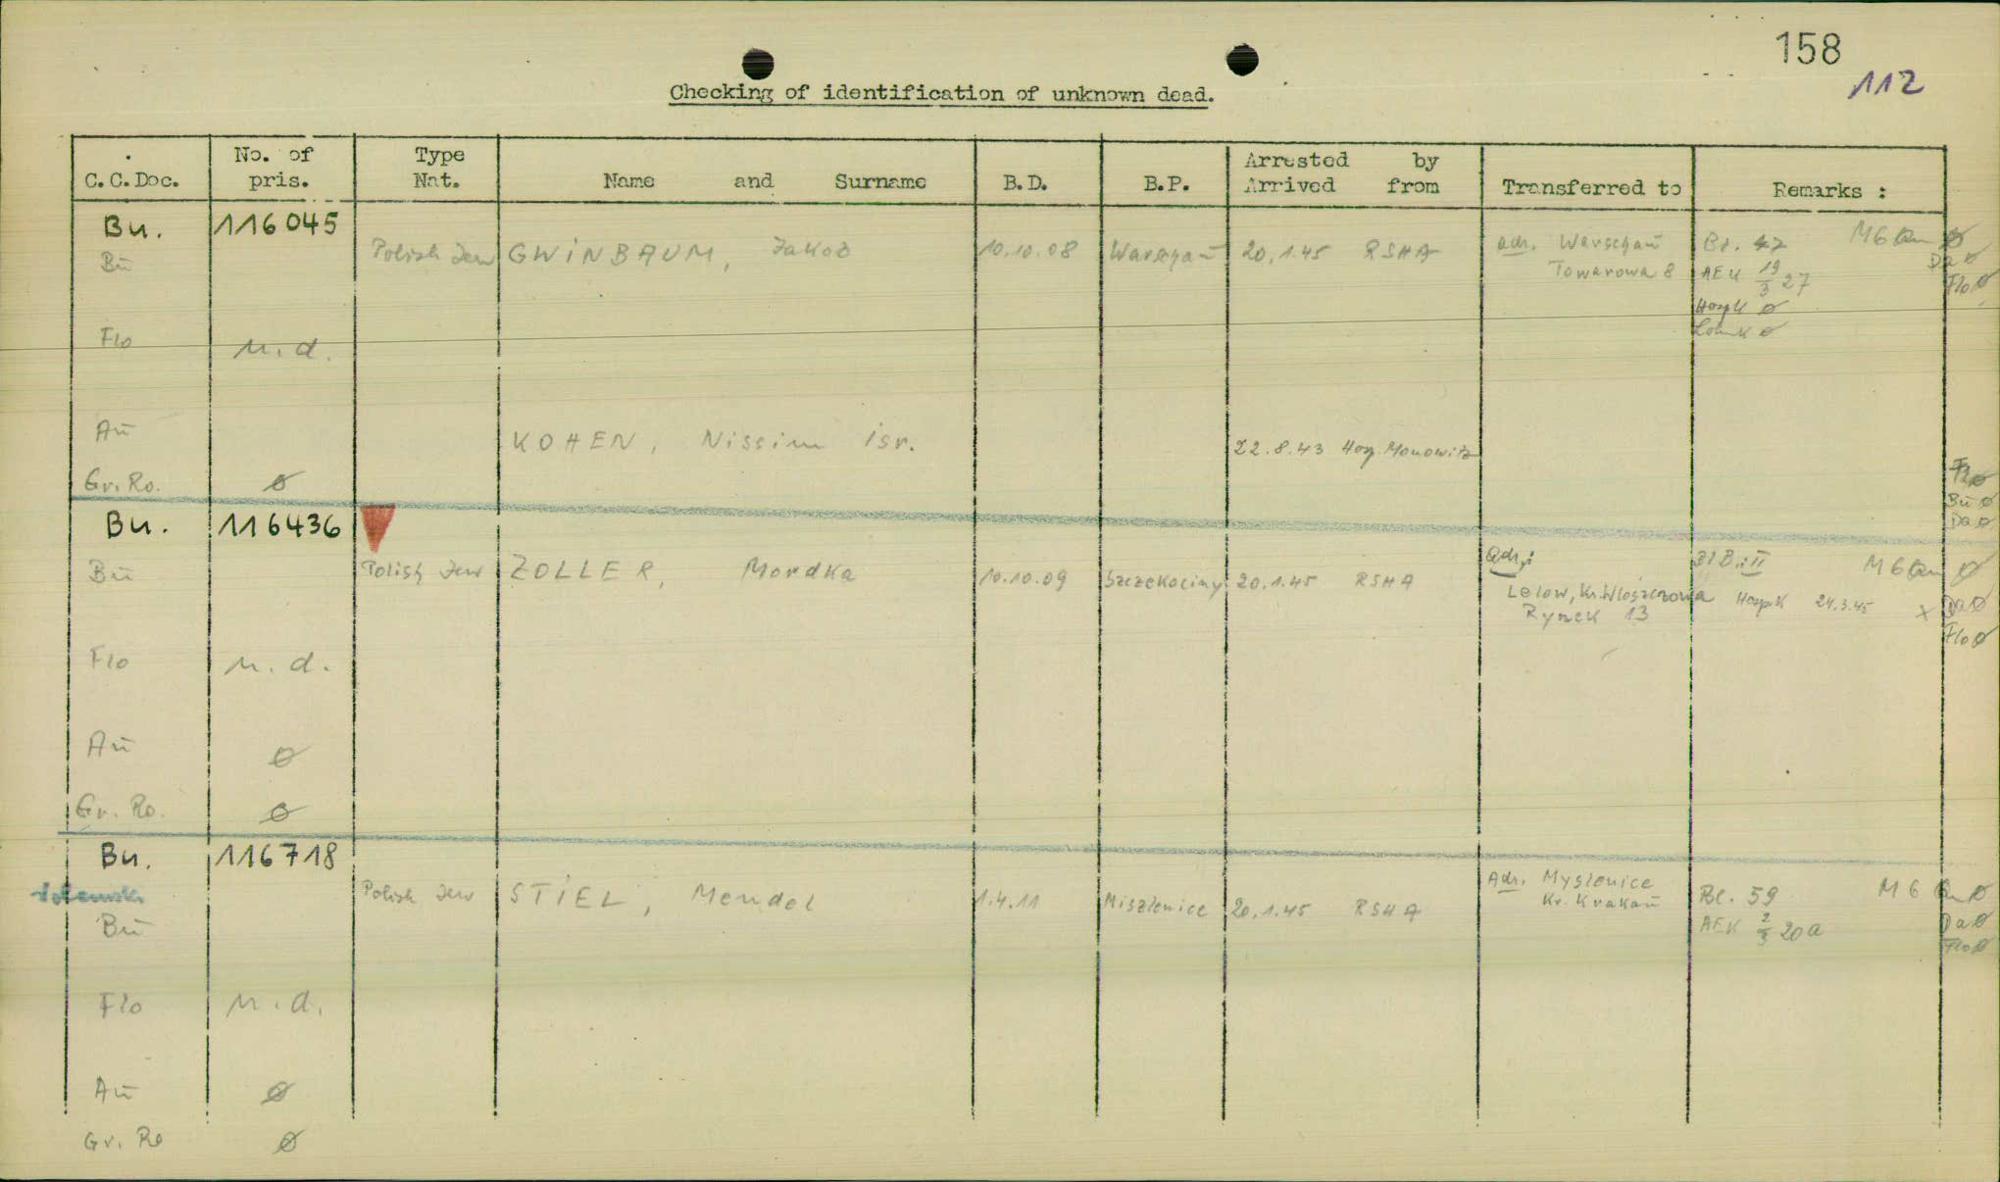 158
112
Checking of identification of unknown dead.
C.C.Doc. No. of pris. Type Nat. Name and Surname B.D. B.P. Arrested by Arrived from Transferred to Remarks :
Bu. 116045
Bū Polish Jew GWiNBAUM, Jakob 10.10.08 Warschau 20.1.45 RSHA adr. Warschau Towarowa 8 Bl. 47 M6
AEK 19/3 27
Da ø
Flo ø
HospK ø
Flo n.d.
Aū KOHEN, Nissim isr. 22.8.43 Hosp. Monowitz
Gr. Ro. ø
Flo ø
Bū ø
Da ø
Bu. 116436
Bū Polish Jew ZOLLER, Mordka 10.10.09 Szczekociny 20.1.45 RSHA Adr.: Lelow, Kr. Wloszczowa Rynek 13 Bl B. II M6
HospK 24.3.45 x Da ø
Flo ø
Flo n.d.
Aū ø
Gr. Ro. ø
Bu. 116718
Bū Polish Jew STiEL, Mendel 1.4.11 Miszlenice 20.1.45 RSHA Adr. Myslenice Kr. Krakau Bl. 59 M6
AEK 2/3 20a Da ø
Flo ø
Flo n.d.
Aū ø
Gr. Ro ø